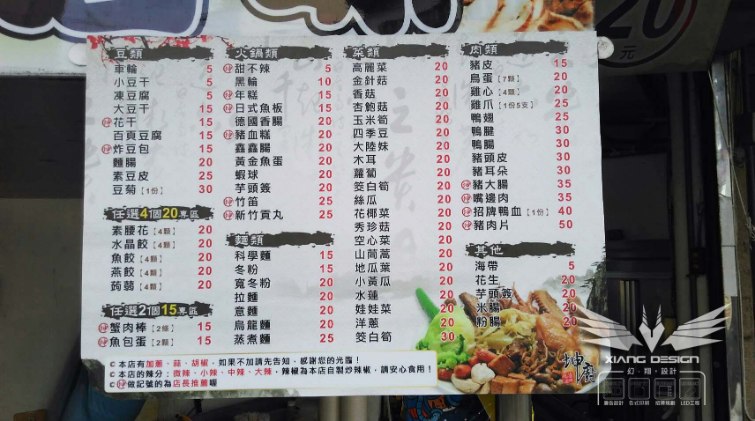 20
元
豆類
車輪 5
小豆干 5
凍豆腐 5
大豆干 15
花干 15
百頁豆腐 15
炸豆包 15
麵腸 20
素豆皮 25
豆菊【1份】 30
任選4個20專區
素腰花【4顆】 20
水晶餃【4顆】 20
魚餃【4顆】 20
燕餃【4顆】 20
蒟蒻【4顆】 20
任選2個15專區
蟹肉棒【2條】 15
魚包蛋【2顆】 15
火鍋類
甜不辣 5
黑輪 10
年糕 15
日式魚板 15
德國香腸 20
豬血糕 20
鑫鑫腸 20
黃金魚蛋 20
蝦球 20
芋頭簽 20
竹笛 25
新竹貢丸 25
麵類
科學麵 15
冬粉 15
寬冬粉 20
拉麵 20
意麵 20
烏龍麵 20
蒸煮麵 25
菜類
高麗菜 20
金針菇 20
香菇 20
杏鮑菇 20
玉米筍 20
四季豆 20
大陸妹 20
木耳 20
蘿蔔 20
筊白筍 20
絲瓜 20
花椰菜 20
秀珍菇 20
空心菜 20
山茼蒿 20
地瓜葉 20
小黃瓜 20
水蓮 20
娃娃菜 20
洋蔥 20
筊白筍 30
肉類
豬皮 15
鳥蛋【7顆】 20
雞心【4顆】 20
雞爪【1份5支】 25
鴨翅 25
鴨腱 30
鴨腸 30
豬頭皮 30
豬耳朵 30
豬大腸 35
嘴邊肉 35
招牌鴨血【1份】 40
豬肉片 50
其他
海帶 5
花生 20
芋頭簽 20
米腸 20
粉腸 20
本店有加蔥、蒜、胡椒，如果不加請先告知、感謝您的光臨！
本店的辣分：微辣、小辣、中辣、大辣、辣椒為本店自製炒辣椒，請安心食用！
做記號的為店長推薦喔
XIANG DESIGN
幻·翔·設計